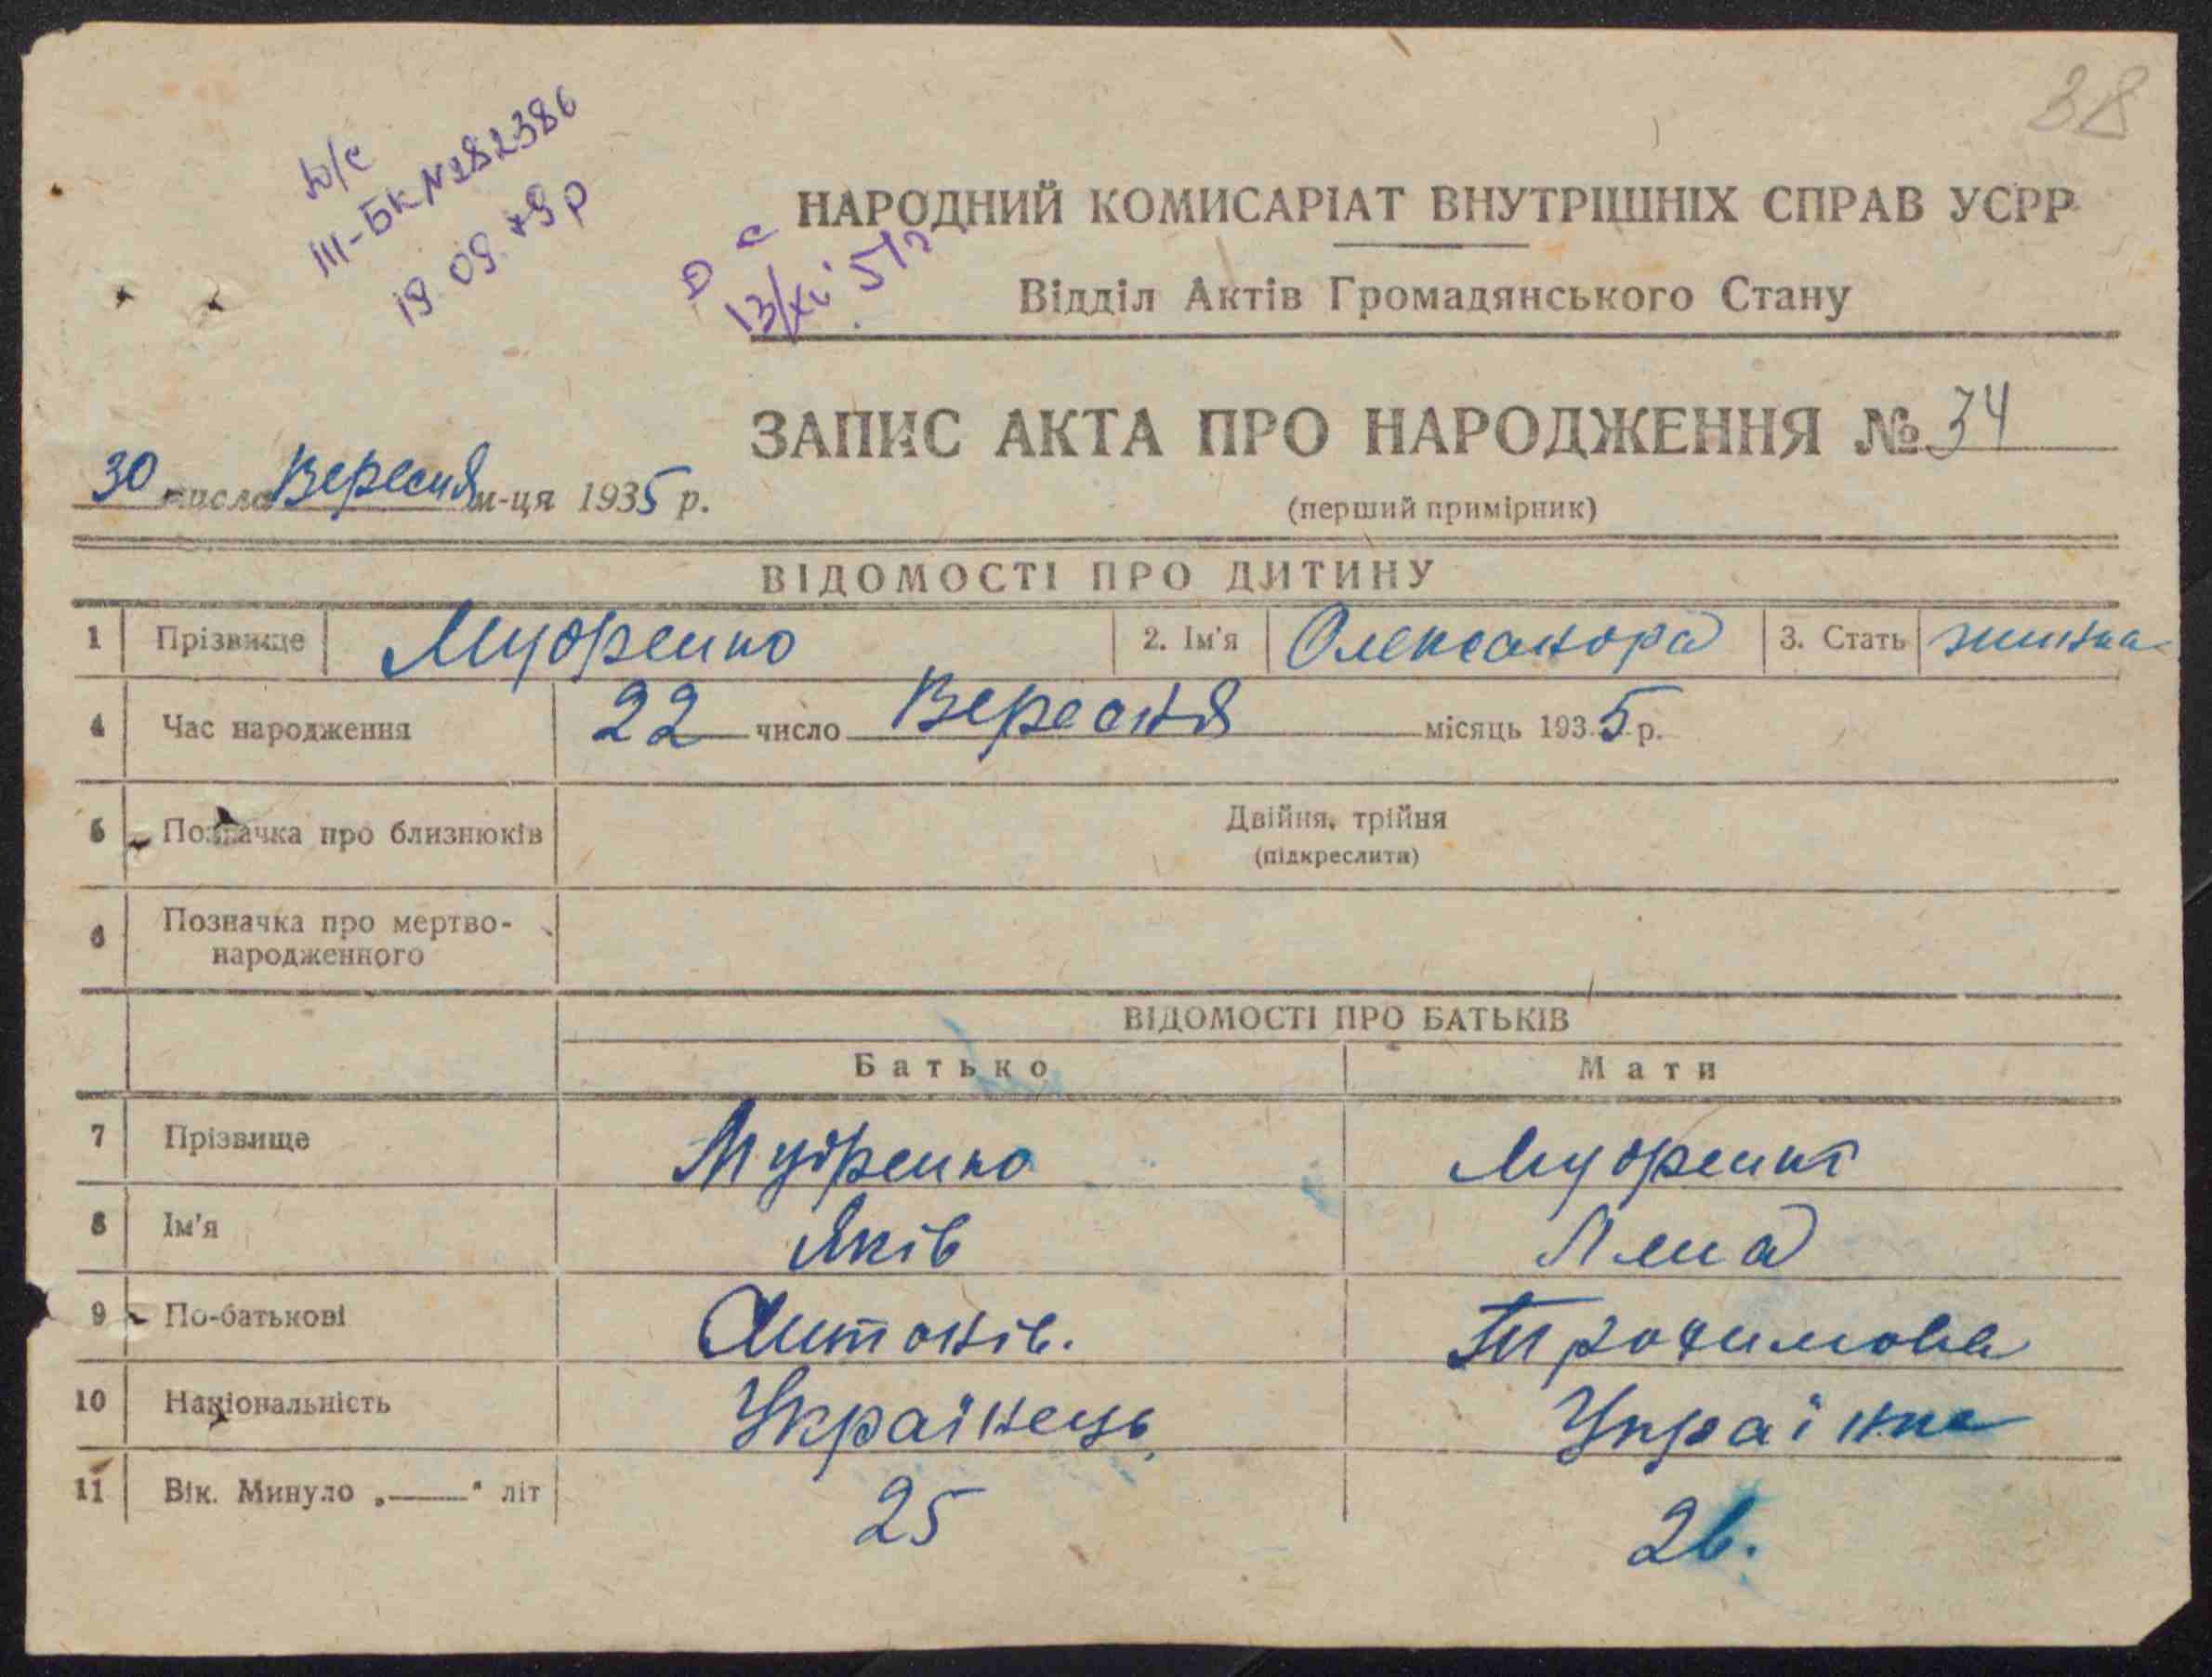 38
ІІІ-БК №282386
19 09. 79р
13/хі
НАРОДНИЙ КОМИСАРІАТ ВНУТРІШНІХ СПРАВ УСРР
Відділ Актів Громадянського Стану
ЗАПИС АКТА ПРО НАРОДЖЕННЯ № 34
30 числа Вересня м-ця 1935 р.
(перший примірник)
ВІДОМОСТІ ПРО ДИТИНУ
1 Прізвище Мудренко 2. Ім'я Олександра 3. Стать жінка
4 Час народження 22 число Вересня місяць 1935 р.
5 Позначка про близнюків Двійня, трійня
(підкреслити)
6 Позначка про мертво-
народженного
ВІДОМОСТІ ПРО БАТЬКІВ
Батько Мати
7 Прізвище Мудренко Мудренко
8 Ім'я Яків
9 По-батькові Антонів. Трохимовна
10 Національність Українець Українка
11 Вік. Минуло „——" літ 25 26.